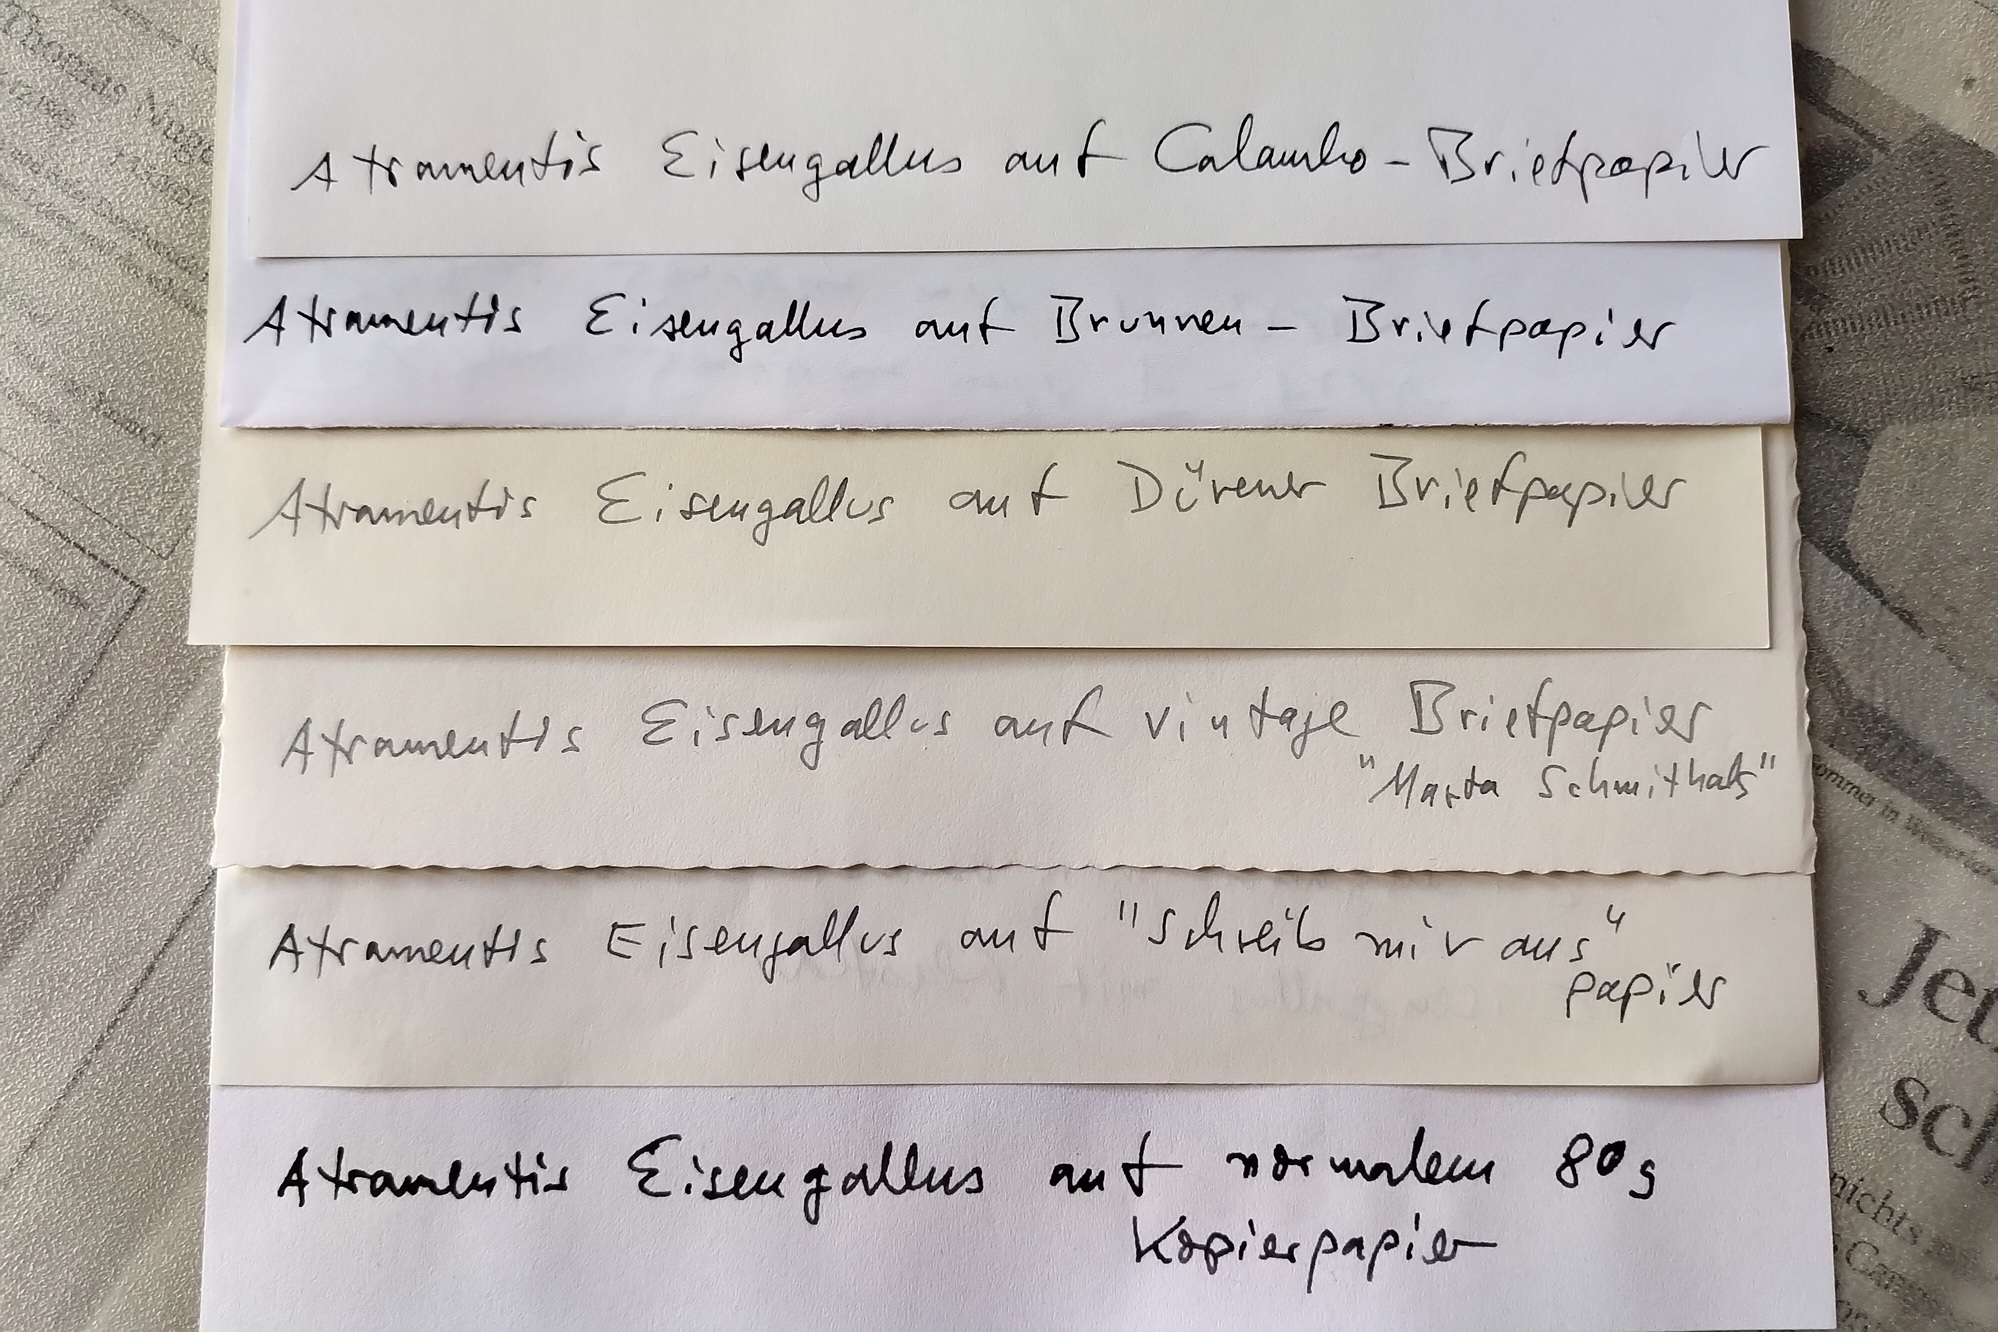 Atramentis Eisengallus auf Calambo-Briefpapier
Atramentis Eisengallus auf Brunnen-Briefpapier
Atramentis Eisengallus auf Dürener Briefpapier
Atramentis Eisengallus auf vintage Briefpapier
"Marta Schmithals"
Atramentis Eisengallus auf "Schreib mir aus"
papier
Atramentis Eisengallus auf normalem 80g
Kopierpapier
Jet
sch
nichts